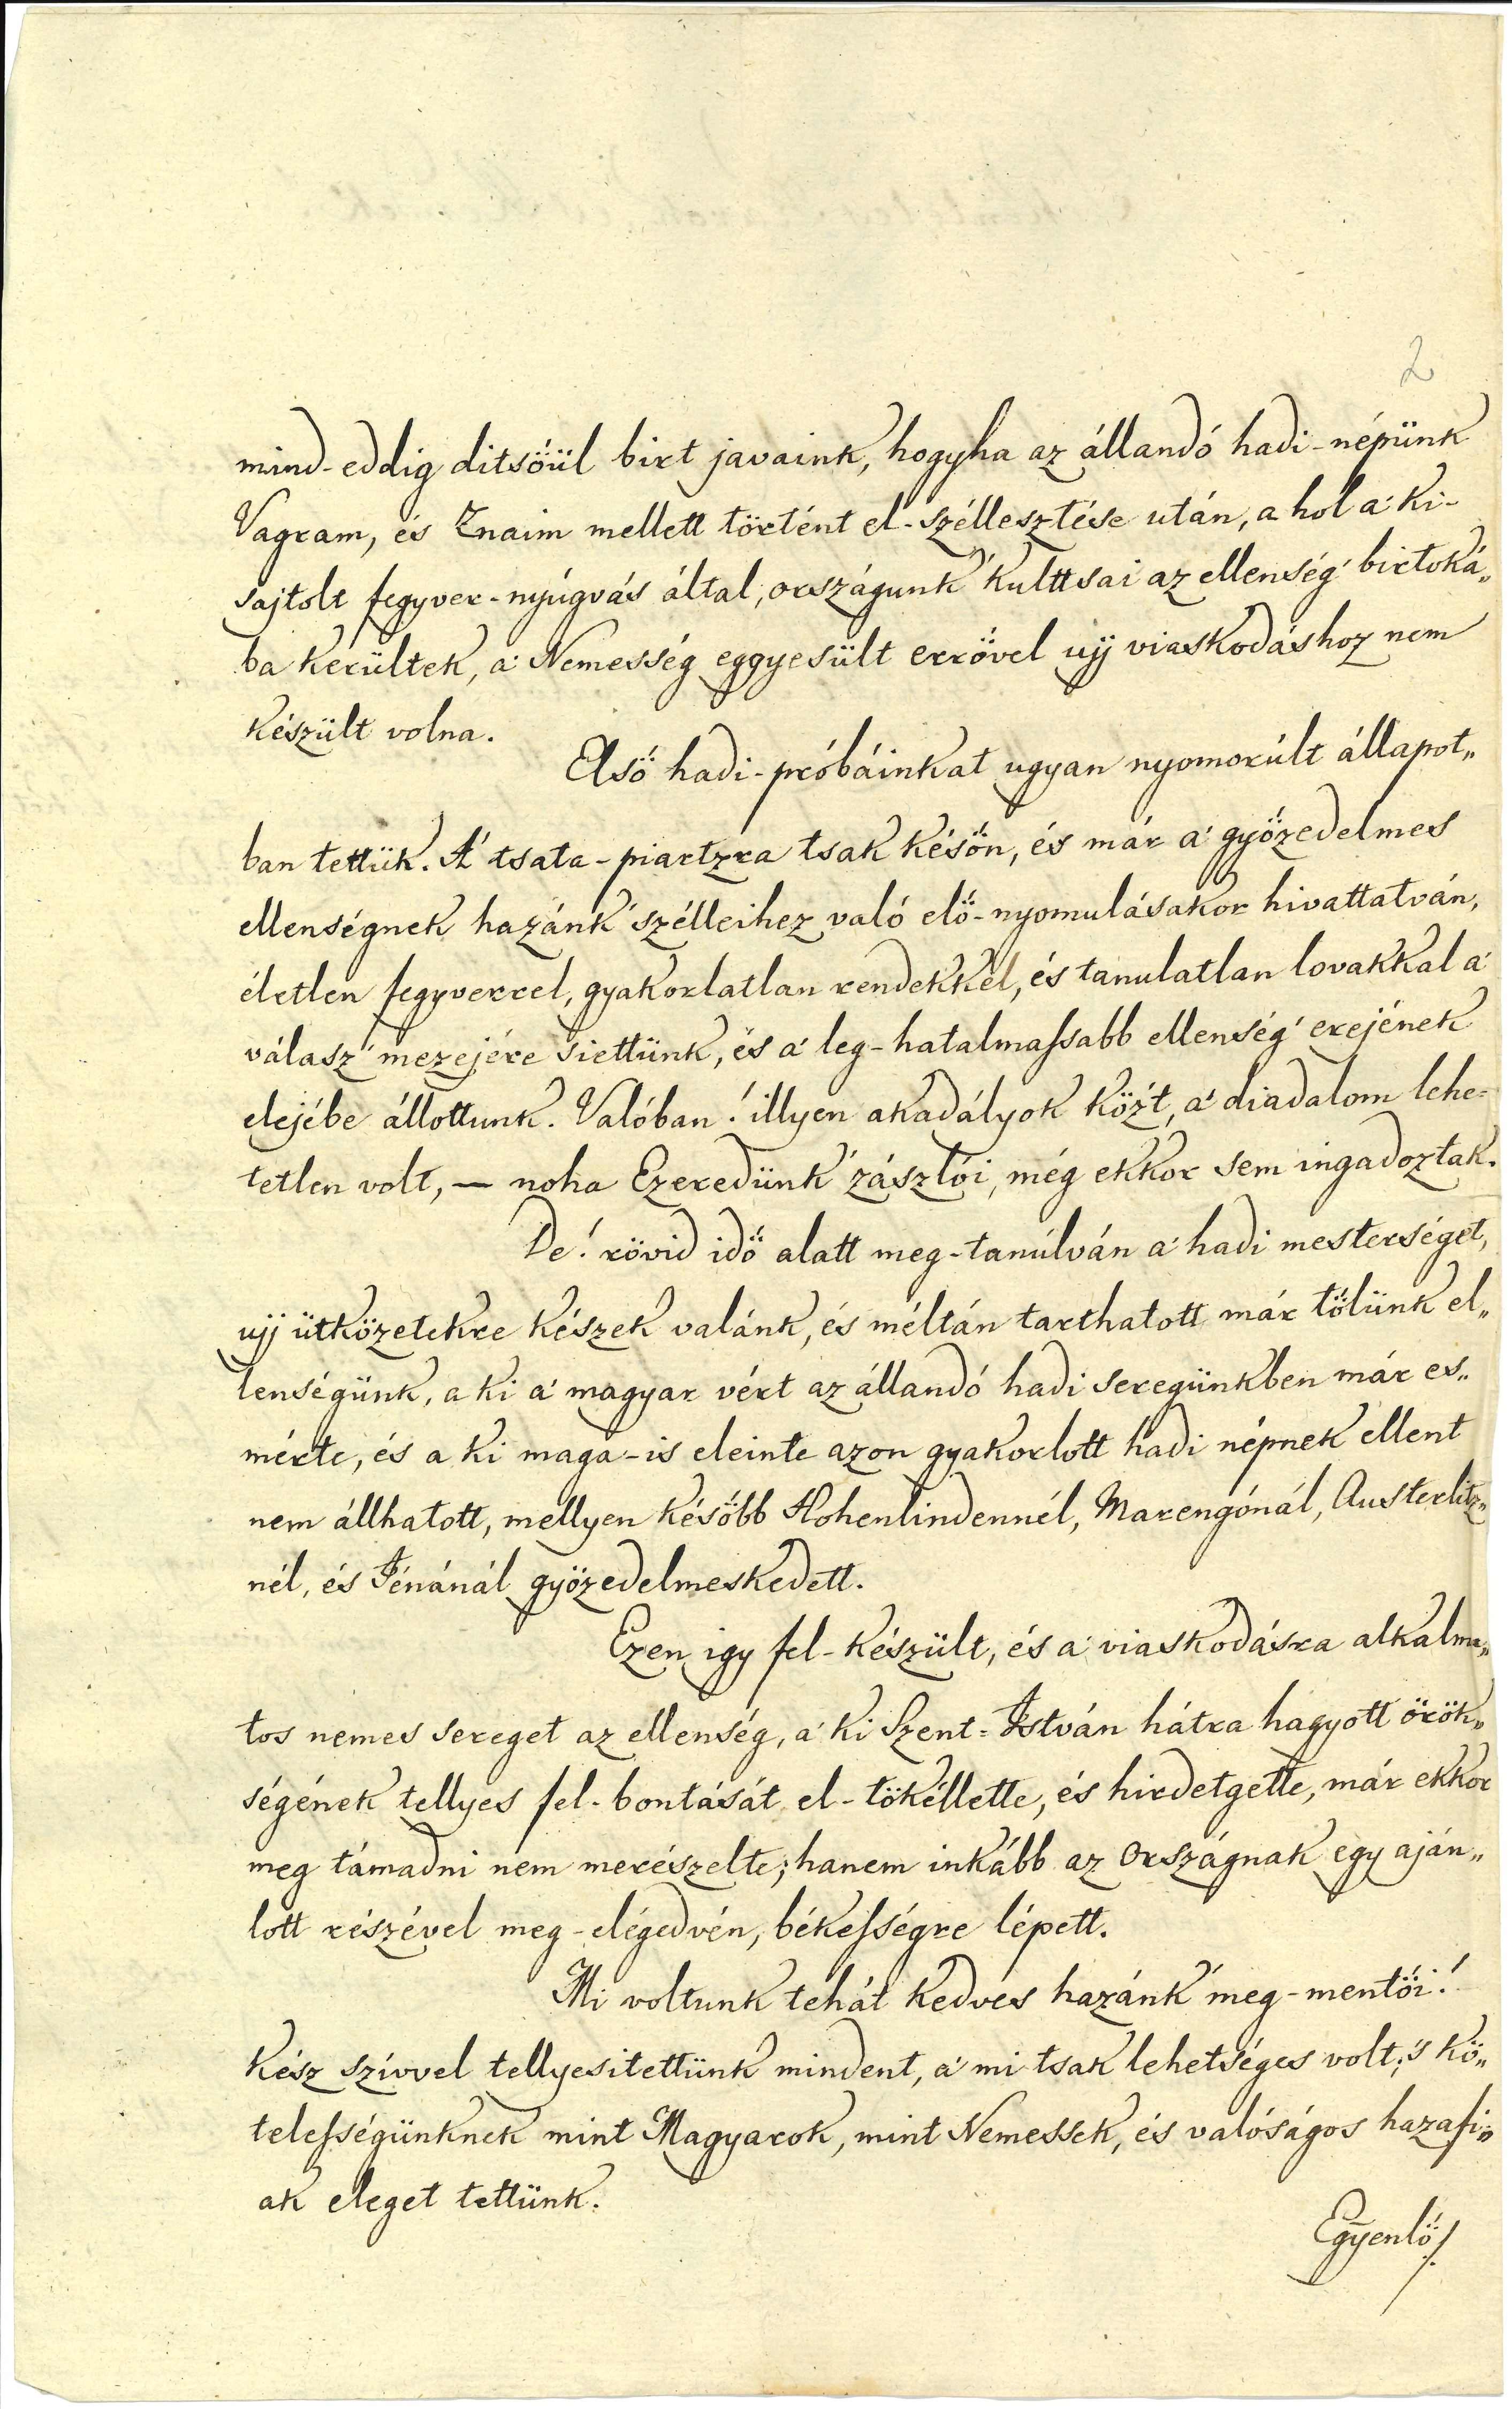 2
mind-eddig ditsőül birt javaink, hogyha az állandó hadi-népünk
Vagram, és Znaim mellett történt el-széllesztése után, a hol a' ki-
sajtolt fegyver-nyúgvás által, országunk' kulttsai az ellenség' birtoká„
ba kerültek, a' Nemesség eggyesült errővel ujj viaskodáshoz nem
készült volna.
Első hadi-próbáinkat ugyan nyomorúlt állapot„
ban tettük. A' tsata-piartzra tsak későn, és már a' győzedelmes
ellenségnek hazánk' szélleihez való elő-nyomulásakor hivattatván,
életlen fegyverrel, gyakorlatlan rendekkel, és tanulatlan lovakkal a'
válasz' mezejére siettünk, és a' leg-hatalmaſsabb ellenség' erejének
elejébe állottunk. Valóban! illyen akadályok közt, a' diadalom lehe=
tetlen volt, — noha Ezeredünk' zászlói, még ekkor sem ingadoztak.
De! rövid idő alatt meg-tanúlván a' hadi mesterséget,
ujj ütközetekre készek valánk, és méltán tarthatott már tőlünk el„
lenségünk, a ki a' magyar vért az állandó hadi seregünkben már es„
mérte, és a ki maga-is eleinte azon gyakorlott hadi népnek ellent
nem állhatott, mellyen később Hohenlindennél, Marengónál, Austerlitz„
nél, és Jénánál győzedelmeskedett.
Ezen igy fel-készült, és a' viaskodásra alkalma„
tos nemes sereget az ellenség, a' ki Szent=István hátra hagyott örök„
ségének tellyes fel-bontását el-tökéllette, és hirdetgette, már ekkor
meg támadni nem merészelte; hanem inkább az Országnak egy aján„
lott részével meg-elégedvén, békeſségre lépett.
Mi voltunk tehát kedves hazánk' meg-mentői!
kész szívvel tellyesitettünk mindent, a' mi tsak lehetséges volt, 's kö„
teleſségünknek mint Magyarok, mint Nemessek, és valóságos hazafi„
ak eleget tettünk.
Egyenlő!